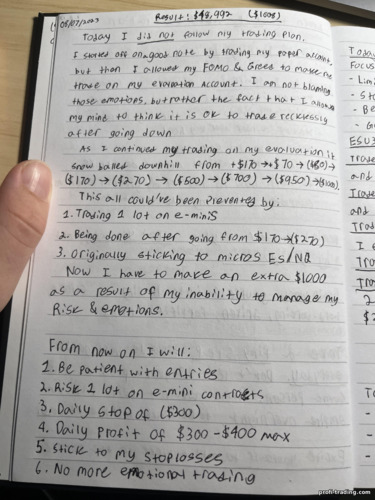 08/07/2023
Result: $49,992 ($1008)
Today I did not follow my trading plan.
I started off on a good note by trading my paper account,
but then I allowed my FOMO & Greed to make me
trade on my evaluation account. I am not blaming
those emotions, but rather the fact that I allowed
my mind to think it is OK to trade recklessly
after going down
As I continued my trading on my evaluation it
snow balled downhill from +$170 → +$70 → ($80) →
($170) → ($270) → ($500) → ($700) → ($950) → ($1008).
This all could've been prevented by:
1. Trading 1 lot on e-minis
2. Being done after going from $170 → ($270)
3. Originally sticking to micros ES/NQ
Now I have to make an extra $1000
as a result of my inability to manage my
Risk & emotions.
From now on I will:
1. Be patient with entries
2. Risk 1 lot on e-mini contracts
3. Daily stop of ($300)
4. Daily Profit of $300-$400 max
5. Stick to my stoplosses
6. No more emotional trading
Toda
Focus
- Limi
- St
- Be
- Gr
ES U3
Trade
and
Trade
and
Trad
I t
Tra
Tra
2
$
To
-
-
-
profittrading.com